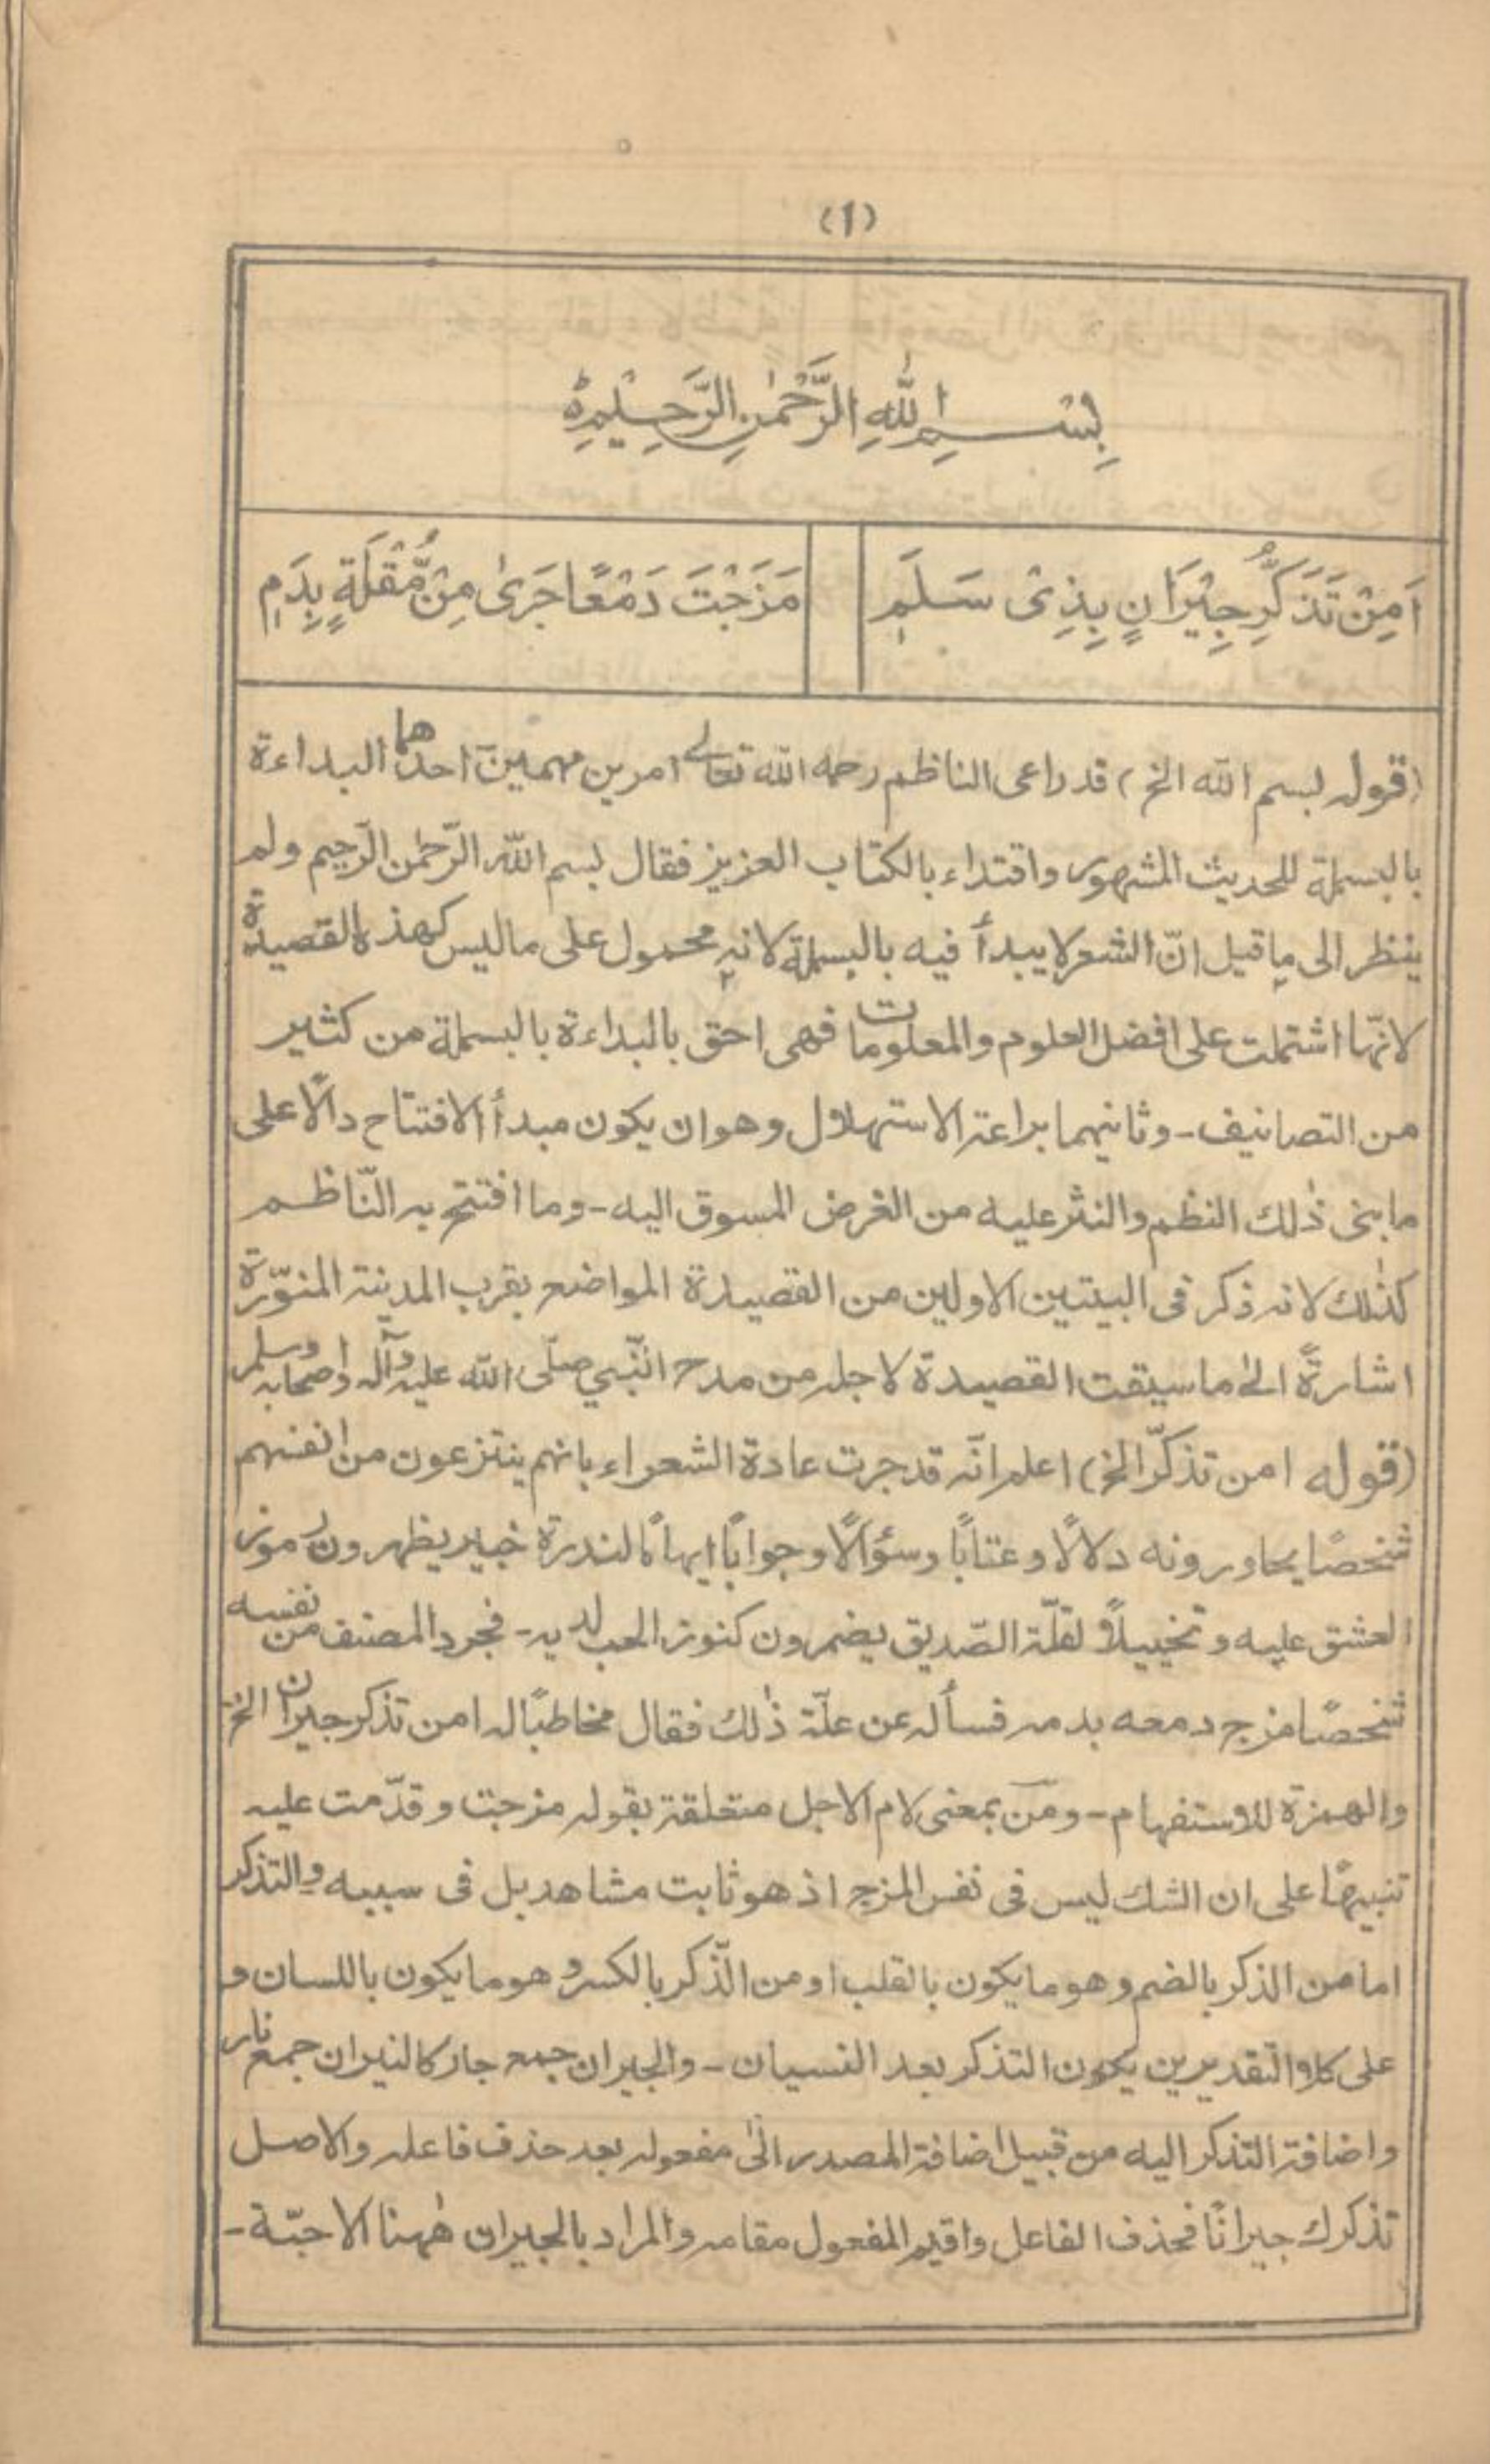 (١)
بِسْمِ اللهِ الرَّحْمٰنِ الرَّحِيْمِ
اَمِنْ تَذَكُّرِ جِيْرَانٍ بِذِىْ سَلَمٖ مَزَجْتَ دَمْعًا جَرٰى مِنْ مُّقْلَةٍ بِدَمٖ
(قوله بسم الله الخ) قد راعى الناظم رحمه الله تعالى امرين مهمين احدهما البداءة
بالبسملة للحديث المشهور واقتداء بالكتاب العزيز فقال بسم الله الرّحمٰن الرّحيم ولم
ينظر الى ما قيل انّ الشعر لا يبدأ فيه بالبسملة لانه محمول على ما ليس كهذه القصيدة
لانّها اشتملت على افضل العلوم والمعلومات فهى احق بالبداءة بالبسملة من كثير
من التصانيف - وثانيهما براعة الاستهلال وهو ان يكون مبدأ الافتتاح دالًا على
ما بنى ذٰلك النظم والنثر عليه من الغرض المسوق اليه - وما افتتح به النّاظم
كذٰلك لانه ذكر فى البيتين الاولين من القصيدة المواضع بقرب المدينة المنوّرة
اشارةً الىٰ ما سيقت القصيدة لاجله من مدح النّبي صلّى الله عليه وآله واصحابه وسلم
(قوله امن تذكّر الخ) اعلم انّه قد جرت عادة الشعراء بانهم ينتزعون من انفسهم
شخصًا يحاورونه دلالًا وعتابًا وسؤالًا وجوابًا ايهامًا لندرة خبير يظهرون رموز
العشق عليه وتخييلًا لقلّة الصّديق يضمرون كنوز الحب لديه - فجرد المصنف من نفسه
شخصًا مزج دمعه بدمه فسأله عن علّة ذٰلك فقال مخاطبًا له امن تذكر جيران الخ
والهمزة للاستفهام - ومن بمعنى لام الاجل متعلقة بقوله مزجت وقدّمت عليه
تنبيهًا على ان الشك ليس فى نفس المزج اذ هو ثابت مشاهد بل فى سببه والتذكر
اما من الذكر بالضم وهو ما يكون بالقلب او من الذّكر بالكسر وهو ما يكون باللسان و
على كلا التقديرين يكون التذكر بعد النسيان - والجيران جمع جار كالنيران جمع نار
واضافة التذكر اليه من قبيل اضافة المصدر الىٰ مفعوله بعد حذف فاعله والاصل
تذكرك جيرانًا فحذف الفاعل واقيم المفعول مقامه والمراد بالجيران هٰهنا الاحبّة -